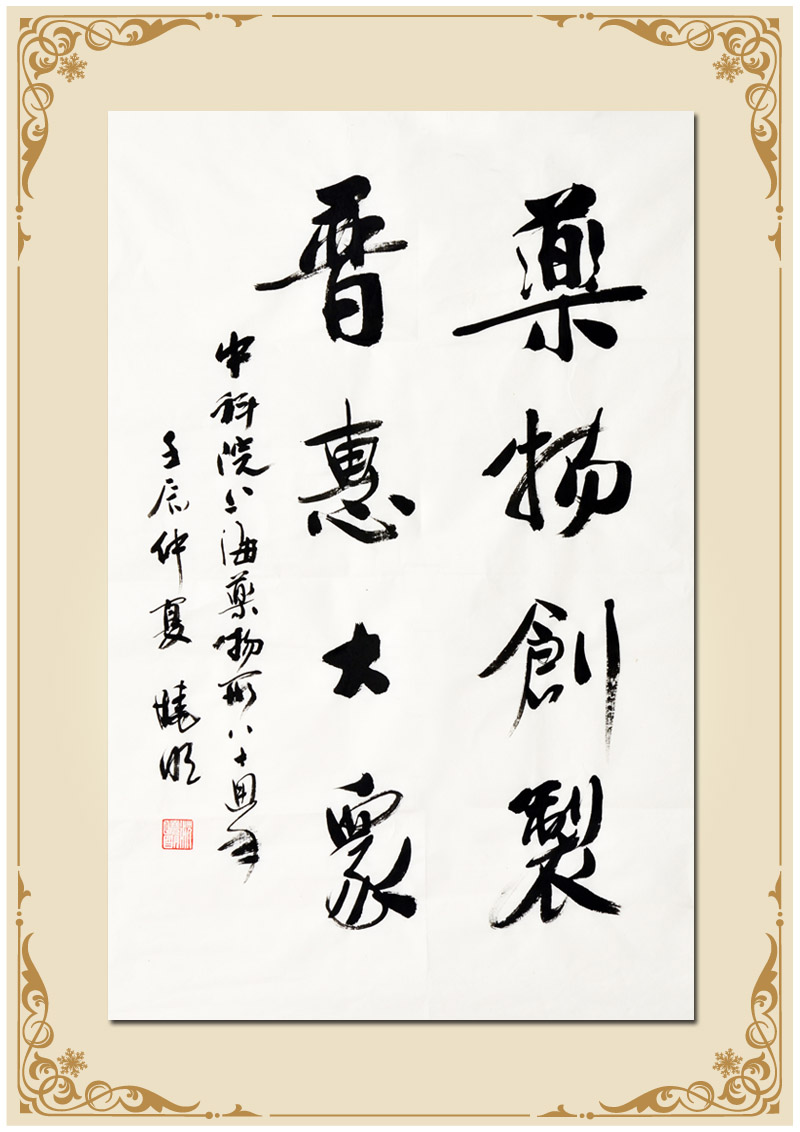 藥物創製
普惠大眾
中科院上海藥物所八十周年
壬辰仲夏 曉明